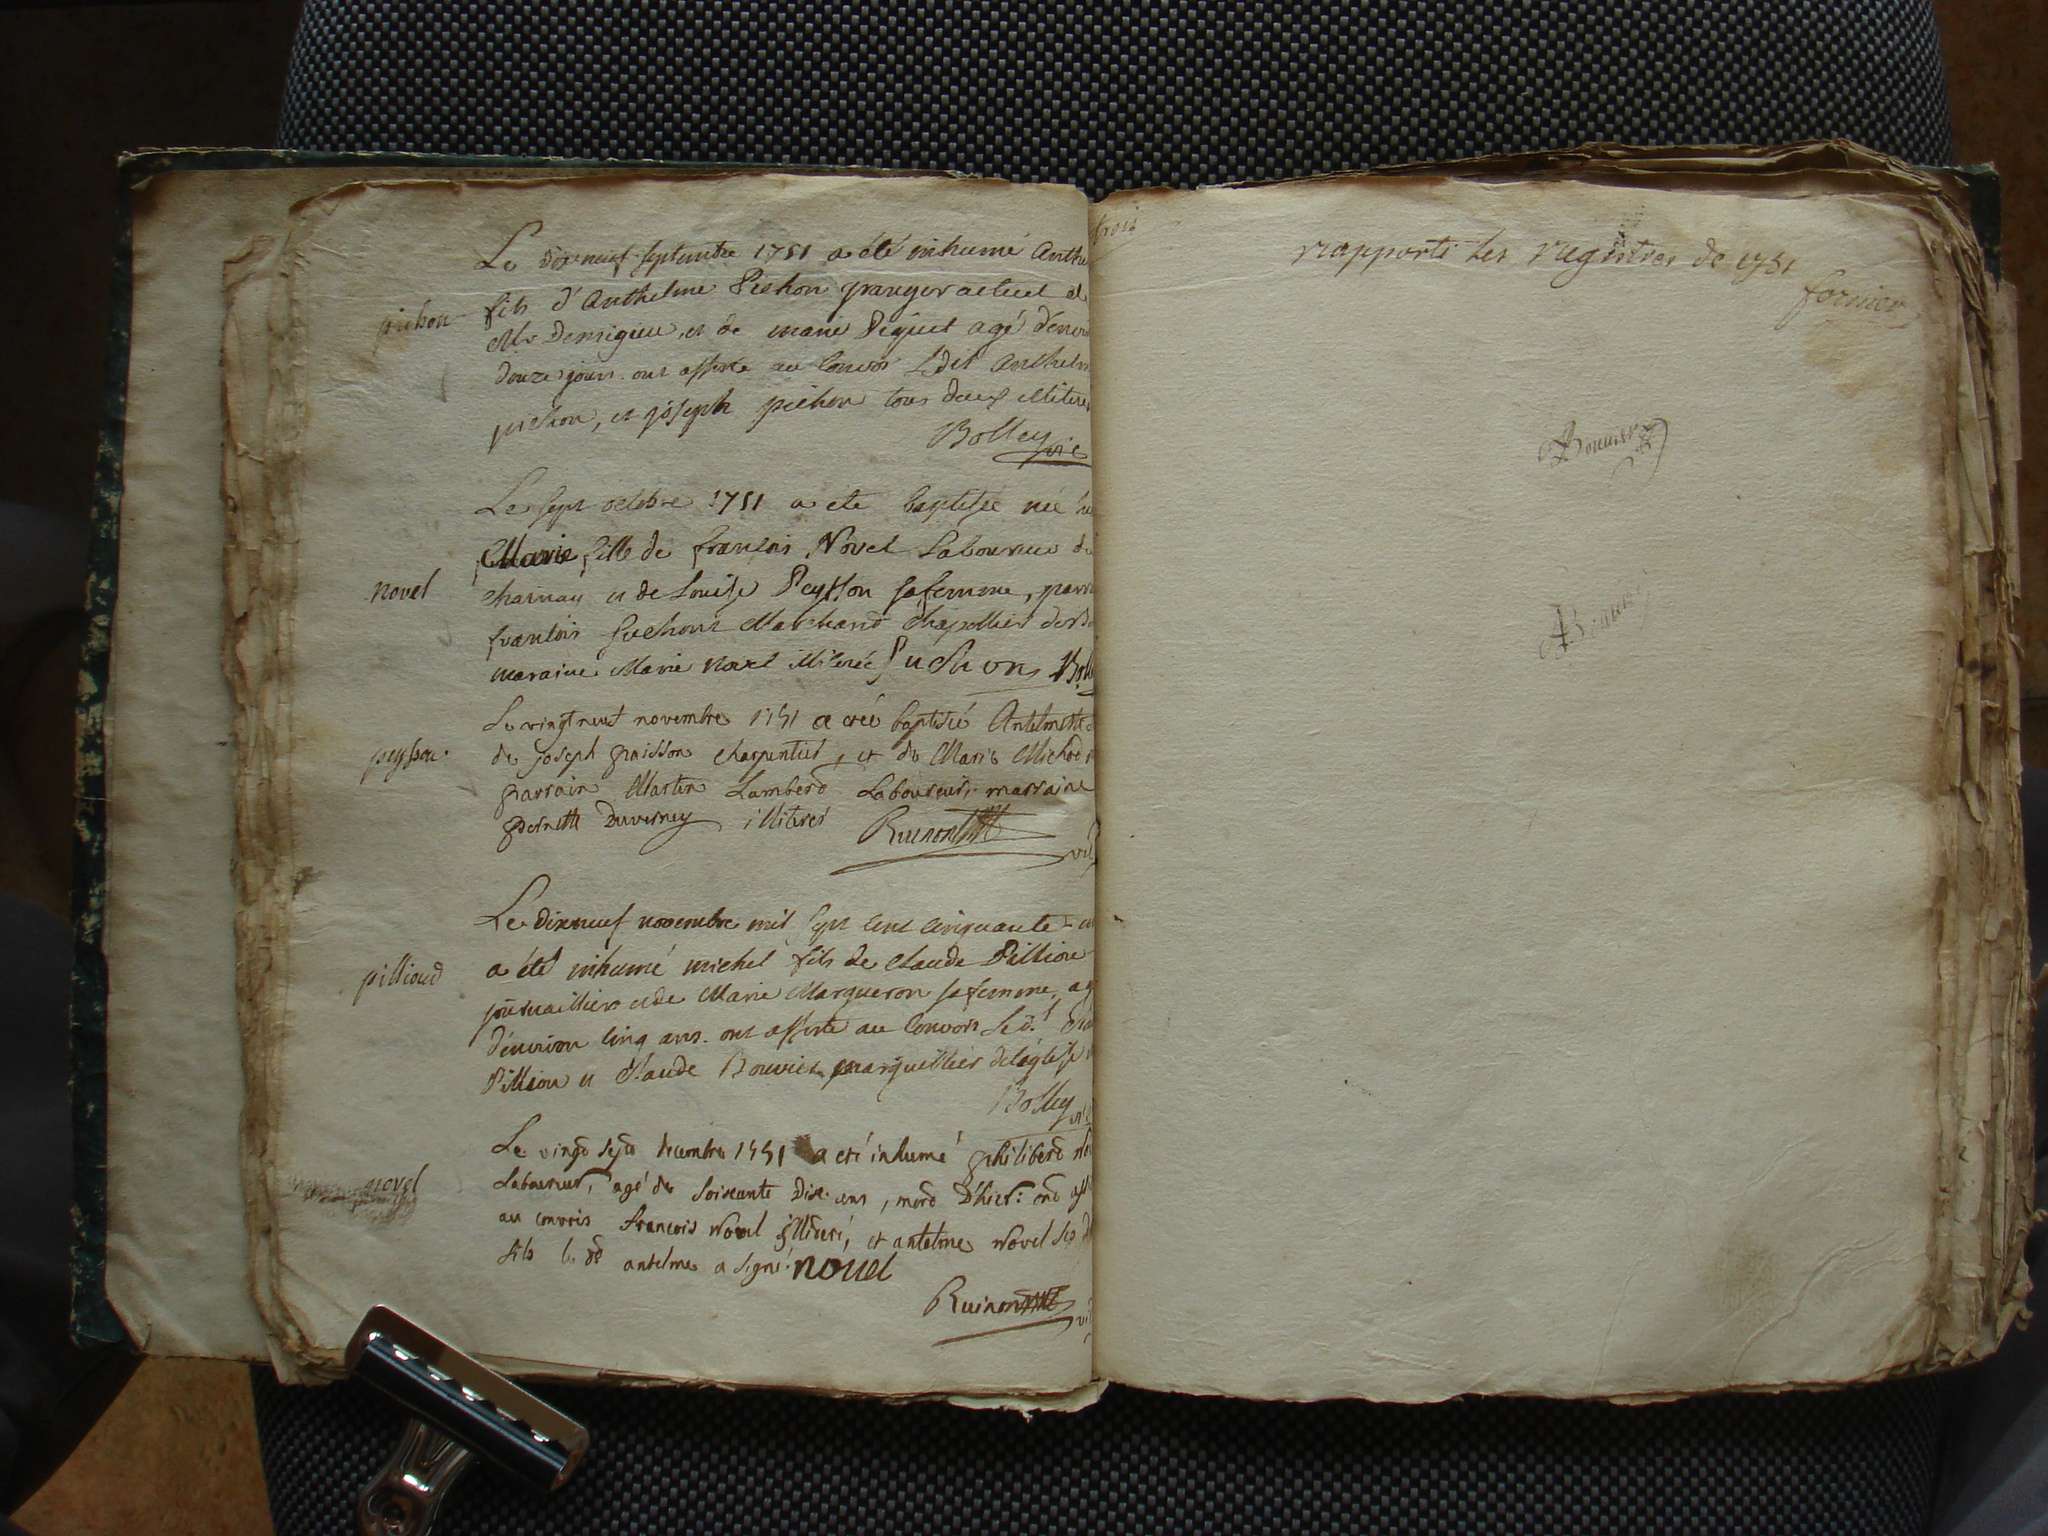 Le dix neuf septembre 1751 a été inhumé Anthe
pichon
fils d'Anthelme Pichon granger actuel de
Mr Demigieu, et de marie Piquet agé d'envi
douze jours. ont assisté au Convoi Ledit Anthelm
pichon, et joseph pichon tous deux illiteré
Bolley vic
Le sept octobre 1751 a ete baptisée née hi
Marie fille de francois Novel Laboureur de
novel
charnay et de Louise Peysson sa femme, parra
francois Suchons Marchand Chapellier
maraine Marie novel illiterée Suchons Boll
Le vingt neuf novembre 1751 a eté baptisée Antelmette
peysson
de joseph paisson charpentier, et de Marie Michod
parrain Martin Lamberd Laboureur, marraine
pernette Duverney illiterés
Ruinon vic
Le dixneuf novembre mil sept cent cinquante un
a été inhumé michel fils de claude Pillion
pillioud
journaillier et de Marie Marqueron sa femme, ag
d'environ cinq ans. ont assisté au Convois Le d.t Clau
Pillion et Claude Bouvier marguillier de léglise
Bolley vi
Le vingd sepd decembre 1751 a eté inhumé philiberd No
novel
Laboureur, agé de soixante dix ans, mord d'hier: ond assi
au convois francois Novel illiteré, et antelme Novel ses
fils le dd antelme a signé: novel
Ruinon vi
trois
rapporté les registres de 1751
fornier
Bouvier